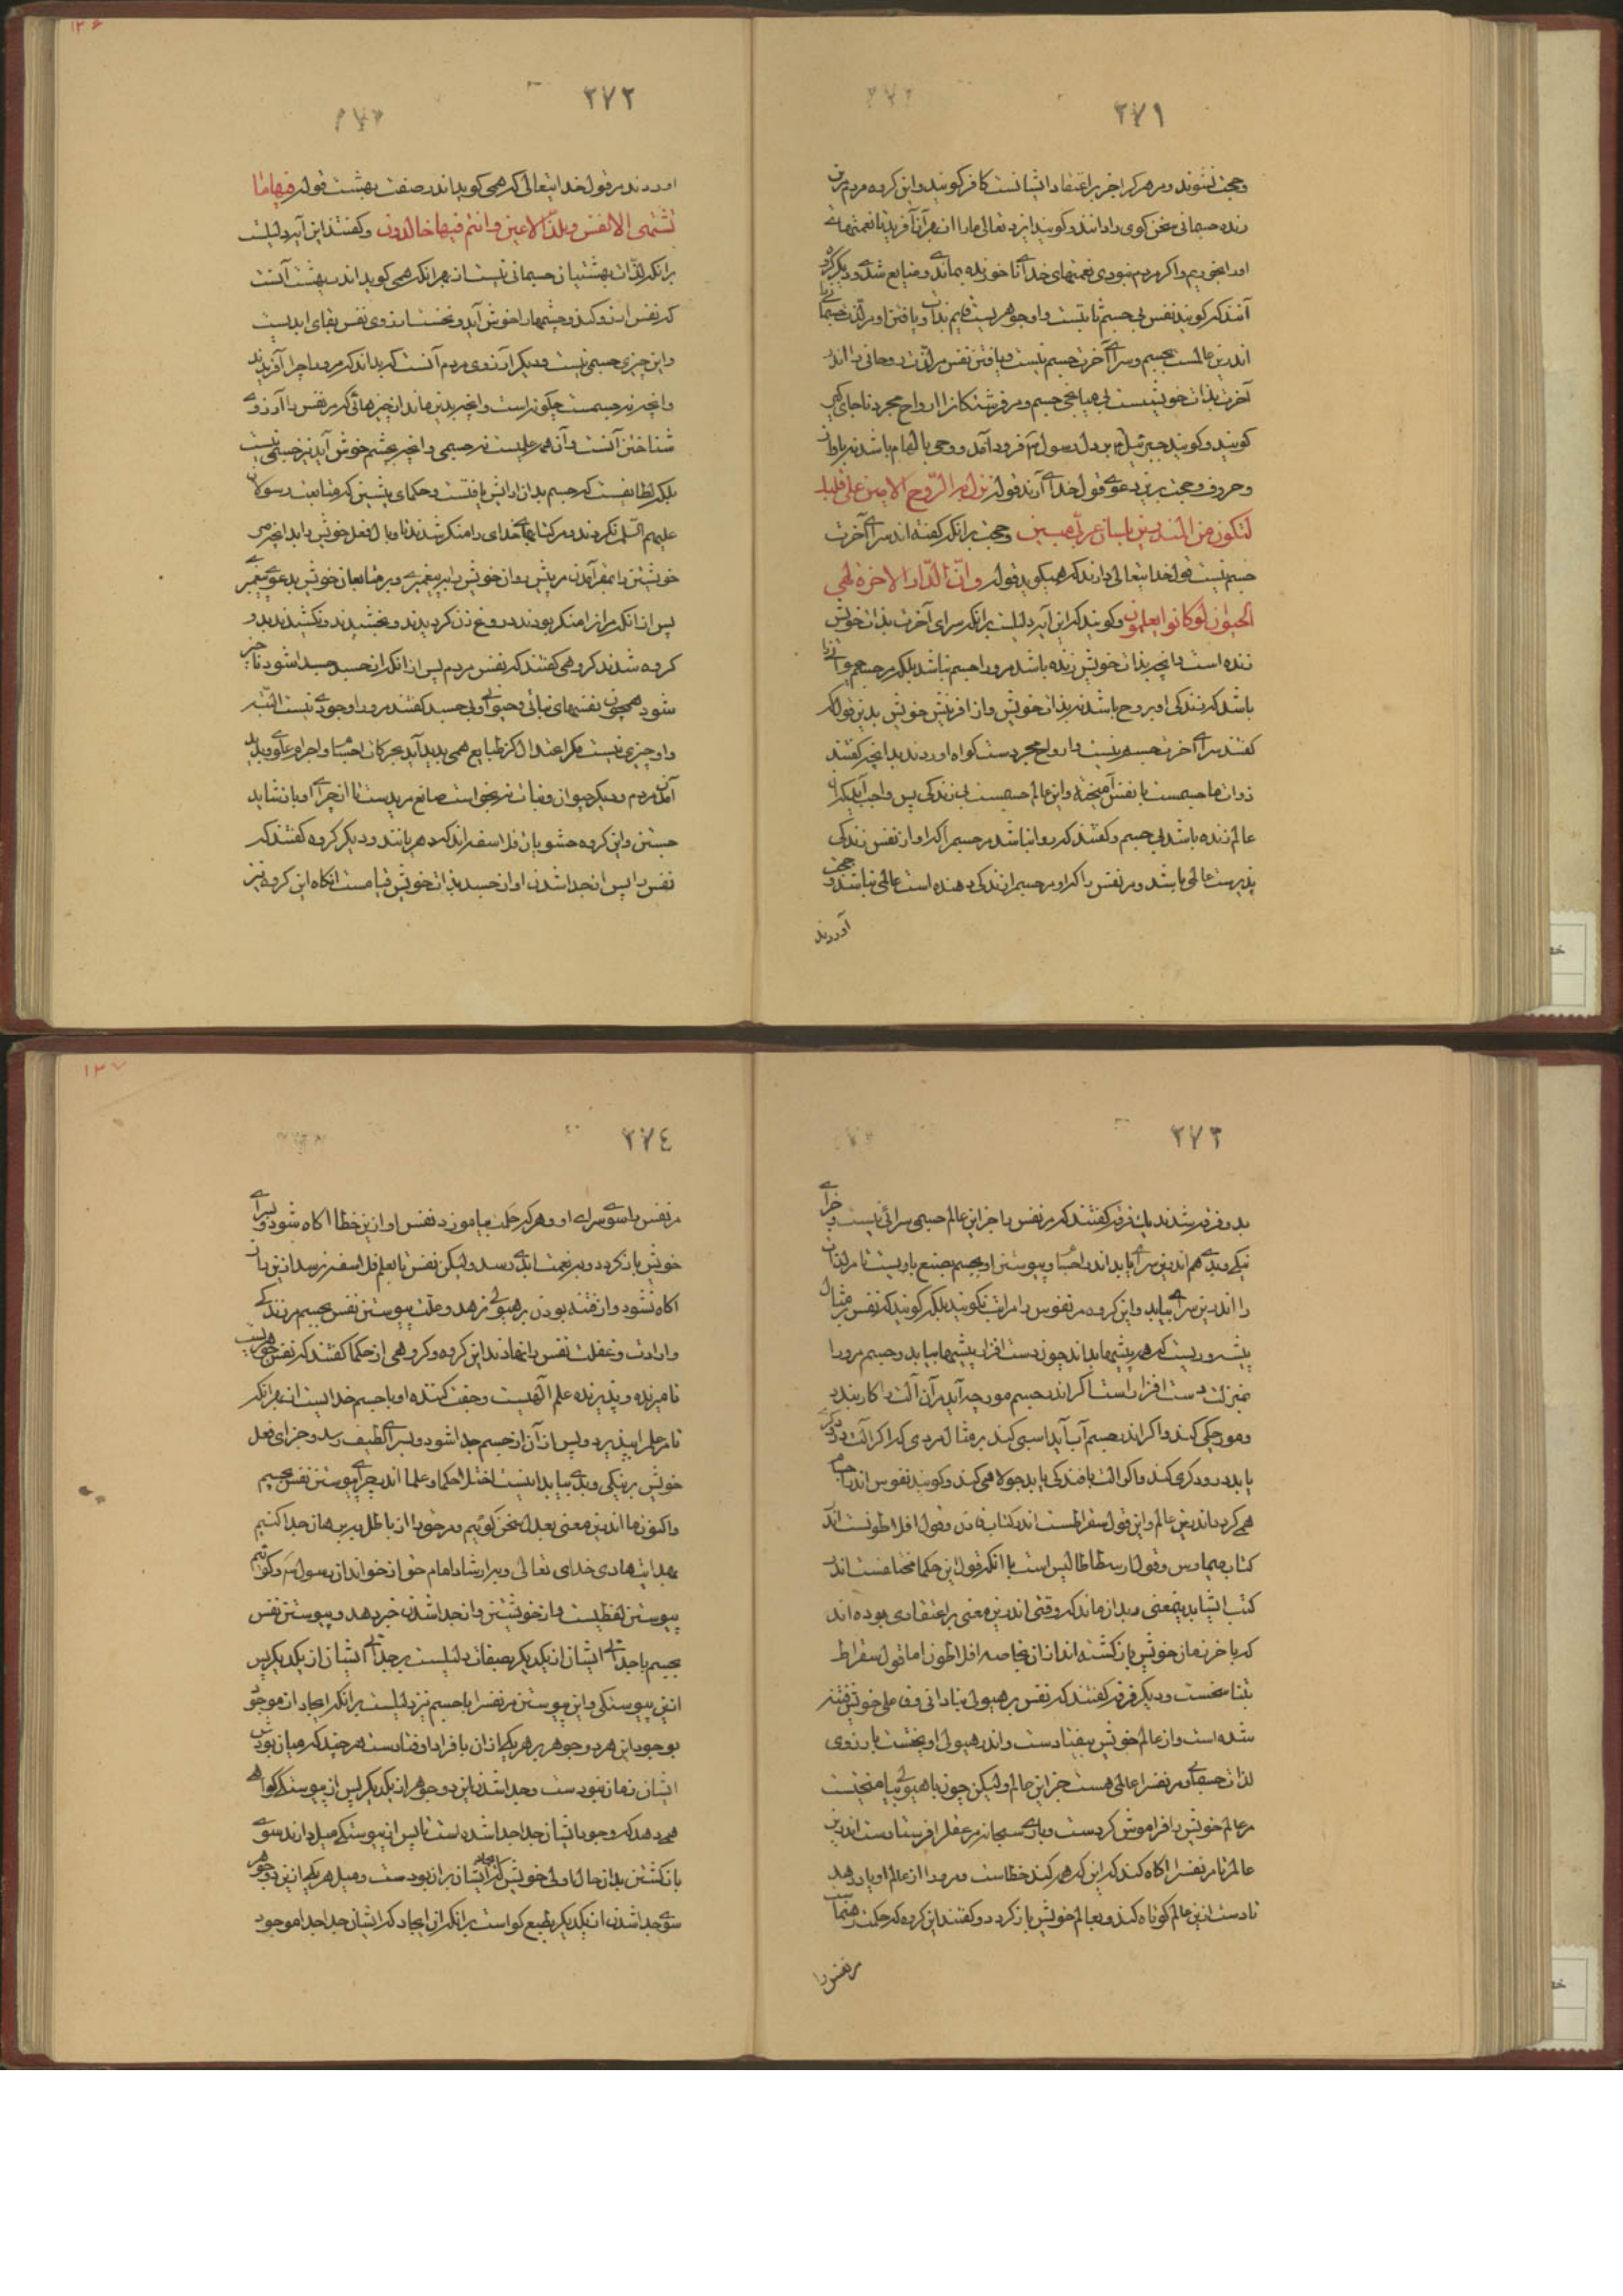 ۲۷۱
و حجت نشنوند و مر هر که را جز بر اعتقاد ایشانست کافر گویند و این گروه مردم مرین
زنده جسمانی سخن گوی را دانند و گویند ایزد تعالی ما را از بهر آن آفرید تا نعمتهای
او را بخوریم و اگر مردم نبودی نعمتهای خدای ناخورده بماندی و ضایع شدی و دیگر گروه
آنند که گویند نفس بی جسم ثابتست و او جوهریست قایم بذات و یافتن او مر لذت جسمانی را
اندرین عالمست بجسم و سرای آخرت جسم نیست و یافتن نفس مر لذت روحانی را اندر
آخرت بذات خویشست بی میانجی جسم و مر فرشتگانرا ارواح مجرد ناجای گیر
گویند و گویند جبرئیل بر دل رسول فرود آمد و وحی بالهام باشد نه باواز
و حروف و حجت برین دعوی قول خدای آرند قوله نزل به الروح الامین علی قلبک
لتکون من المنذرین بلسان عربی مبین و حجت برانکه گفته اند سرای آخرت
جسم نیست قول خدایتعالی دارند که همیگوید قوله وان الدار الاخرة لهی
الحیوان لو کانوا یعلمون و گویند که این آیه دلیلست برانکه سرای آخرت بذات خویش
زنده است و انچه بذات خویش زنده باشد مرورا جسم نباشد بلکه مر جسم حیوانی را
باشد که زندگی او بروح باشد نه بذات خویش و از افرینش خویش بدین قول که
گفتند سرای آخرت جسم نیست و ارواح مجردست گواه اوردند بدانچه گفتند
ذوات ما جسمست با نفس آمیخته و این عالم جسمست بی زندگی پس واجب آید که آن
عالم زنده باشد بی جسم و گفتند که روا نباشد مر جسم را که او از نفس زندگی
پذیرست عالمی باشد و مر نفس را که او مر جسم را زندگی دهنده است عالمی نباشد و حجت
آوردند
۲۷۲
اوردند مر قول خدایتعالی که همی گوید اندر صفت بهشت قوله فیها ما
تشتهی الانفس و تلذ الاعین و انتم فیها خالدون و گفتند این آیه دلیلست
برانکه لذات بهشتیان جسمانی نیست از بهر انکه همی گوید اندر بهشت آنست
که نفس ارزو کند و چشمها را خوش آید و نخست ارزوی نفس بقای ابدیست
و این چیزی جسمی نیست و دیگر آرزوی مردم آنست که بداند که مرورا چرا آفریدند
و انچه نه جسمست چگونه است و انچه بدین ماند از چیزهائی که مر نفس را آرزوی
شناختن آنست و آن همه علمیست نه جسمی و انچه بچشم خوش آید نیز جسمی نیست
بلکه لطایفست که جسم بدان ارایش یافتست و حکمای پیشین که متابعت رسولان
علیهم السلم نکردند و مر کتابهای خدای را منکر شدند تا وبال فعل خویش را بدانچه مر
خویشتن را بمقر آمدن
پس از انکه
گروه شدند گروهی گفتند که نفس مردم پس از انکه از جسد جدا شود ناچیز
شود همچون نفسهای نباتی و حیوانی و بی جسد گفتند مرورا وجودی نیست البته
و او چیزی نیست مگر اعتدالی کز طبایع همی پدید آید بحرکات اجسام و اجرام علوی و پدید
آمدن مردم و دیگر حیوان و نبات نه بخواست صانع مریدست تا از جزای او باز شاید
جستن و این گروه حشویان فلاسفه اند که دهریانند و دیگر گروه گفتند که
نفس را پس از جدا شدن او از جسد بذات خویش قیامست انگاه این گروه نیز
۲۷۳
بدو فرقه شدند یک فرقه گفتند که مر نفس را جز این عالم جسمی سرائی نیست و جزای
نیکی و بدی هم اندرین سرای یابد اندر اجسام و پیوستن او بجسم بصنع باریست تا مر لذات
را اندرین سرای بیابد و این گروه مر نفوس را مراتب نگویند بلکه گویند که نفس بر مثال
پیشه وریست که هر پیشها بداند چون دست افزار پیشها بیابد و جسم مرورا
بمنزلت دست افزارست اگر اندر جسم مورچه آید بر آن آلت را کار بندد
و مورچگی کند و اگر اندر جسم آب آید اسبی کند بر مثال مردی که اگر آلت درودگری
یابد درودگری کند و اگر آلت بافندگی یابد جولاهی کند و گویند نفوس اندر اجسام
همی گردد اندرین عالم و این قول سقراطست اندر کتاب فادن و قول افلاطونست اندر
کتاب طیماوس و قول ارسطاطالیس است با انکه قول این حکما مختلفست اندر
کتب ایشان بدین معنی و بدان ماند که وقتی اندرین معنی بر اعتقادی بوده اند
که باخر زمان خویش بازگشته اند از ان بخاصه افلاطون اما قول سقراط
بتناسخست و دیگر فرقه گفتند که نفس بر هیولی بنادانی و غافلی خویش فتنه
شده است و از عالم خویش بیفتادست و اندر هیولی اویختست بارزوی
لذات حسی و مر نفس را عالمی هست جز این عالم ولیکن چون با هیولی بیامیختست
مر عالم خویش را فراموش کردست و باری سبحانه مر عقل را فرستادست اندرین
عالم تا مر نفس را اگاه کند که این که همی کند خطاست و مرورا از عالم او یاد دهد
تا دست ازین عالم کوتاه کند و بعالم خویش باز گردد و گفتند این گروه که حکمت رهنمایست
مر نفس را
۲۷۴
مر نفس را سوی سرای او و هر که حکمت بیاموزد نفس او ازین خطا اگاه شود و بسرای
خویش باز گردد و بر نعمت ابدی رسد ولیکن نفس تا بعلم فلاسفه نرسد ازین راز
اگاه نشود و از فتنه بودن بر هیولی نرهد و علت پیوستن نفس بجسم مر زندگی
و ارادت و غفلت نفس را نهادند این گروه و گروهی از حکما گفتند که نفس جوهریست
نامیرنده و پذیرنده علم الهیست و جفت کننده او با جسم خدایست از بهر انکه
تا مر علم را بپذیرد و پس از آن از جسم جدا شود و بسرای لطیف رسد و جزای فعل
خویش بر نیکی و بدی بیابد اینست اختلاف حکما و علما اندر چرائی پیوستن نفس بجسم
و اکنون ما اندرین معنی بعدل سخن گوئیم و مر حق را از باطل ببرهان جدا کنیم
بهدایت هادی خدای تعالی و بر ارشاد امام حق از خواندان رسول و گوئیم
پیوستن لفظیست که از خویشتن و از جدا شدن خبر دهد و پیوستن نفس
بجسم با جدائی ایشان از یکدیگر بصفات دلیلست بر جدائی ایشان از یکدیگر پس
ازین پیوستگی و این پیوستن مر نفس را با جسم نیز دلیلست برانکه ایجاد از موجد
بوجود این هر دو جوهر بر هر یکی از ان بافراد اوفتادست هر چند که میان بودش
ایشان زمان نبودست و جدا شدن این دو جوهر از یکدیگر پس از پیوستگی گواهی
همی دهد که وجود ایشان جدا جدا شده است تا پس از پیوستگی میل دارند سوی
باز گشتن بدان حال اولی خویش که ایجاد ایشان بران بودست و میل هر یکی ازین دو جوهر
سوی جدا شدن از یکدیگر بطبع گواست برانکه از ایجاد گر ایشان جدا جدا موجود